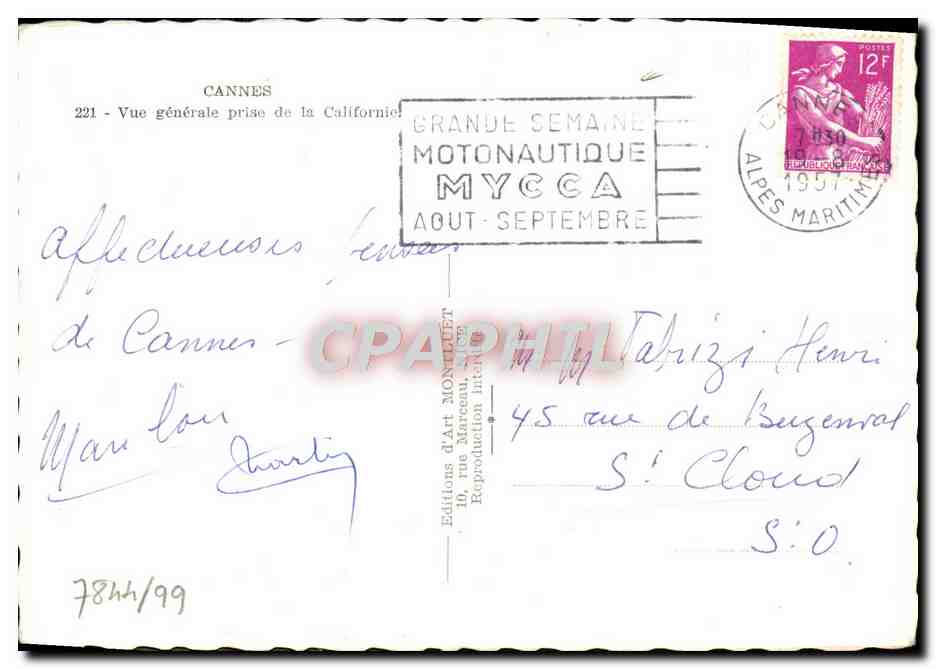 CANNES
221 - Vue générale prise de la Californie
GRANDE SEMAINE
MOTONAUTIQUE
MYCCA
AOUT - SEPTEMBRE
POSTES
12F
REPUBLIQUE FRANÇAISE
CANNES
7H30
19 - 8
1957
ALPES MARITIMES
Affectueuses pensées
de Cannes -
CPAPHIL
Editions d'Art MONTLUET
10, rue Marceau, NICE
Reproduction interdite
Fabrizi Henri
45 rue de Buzenval
St Cloud
S. O
7844/99